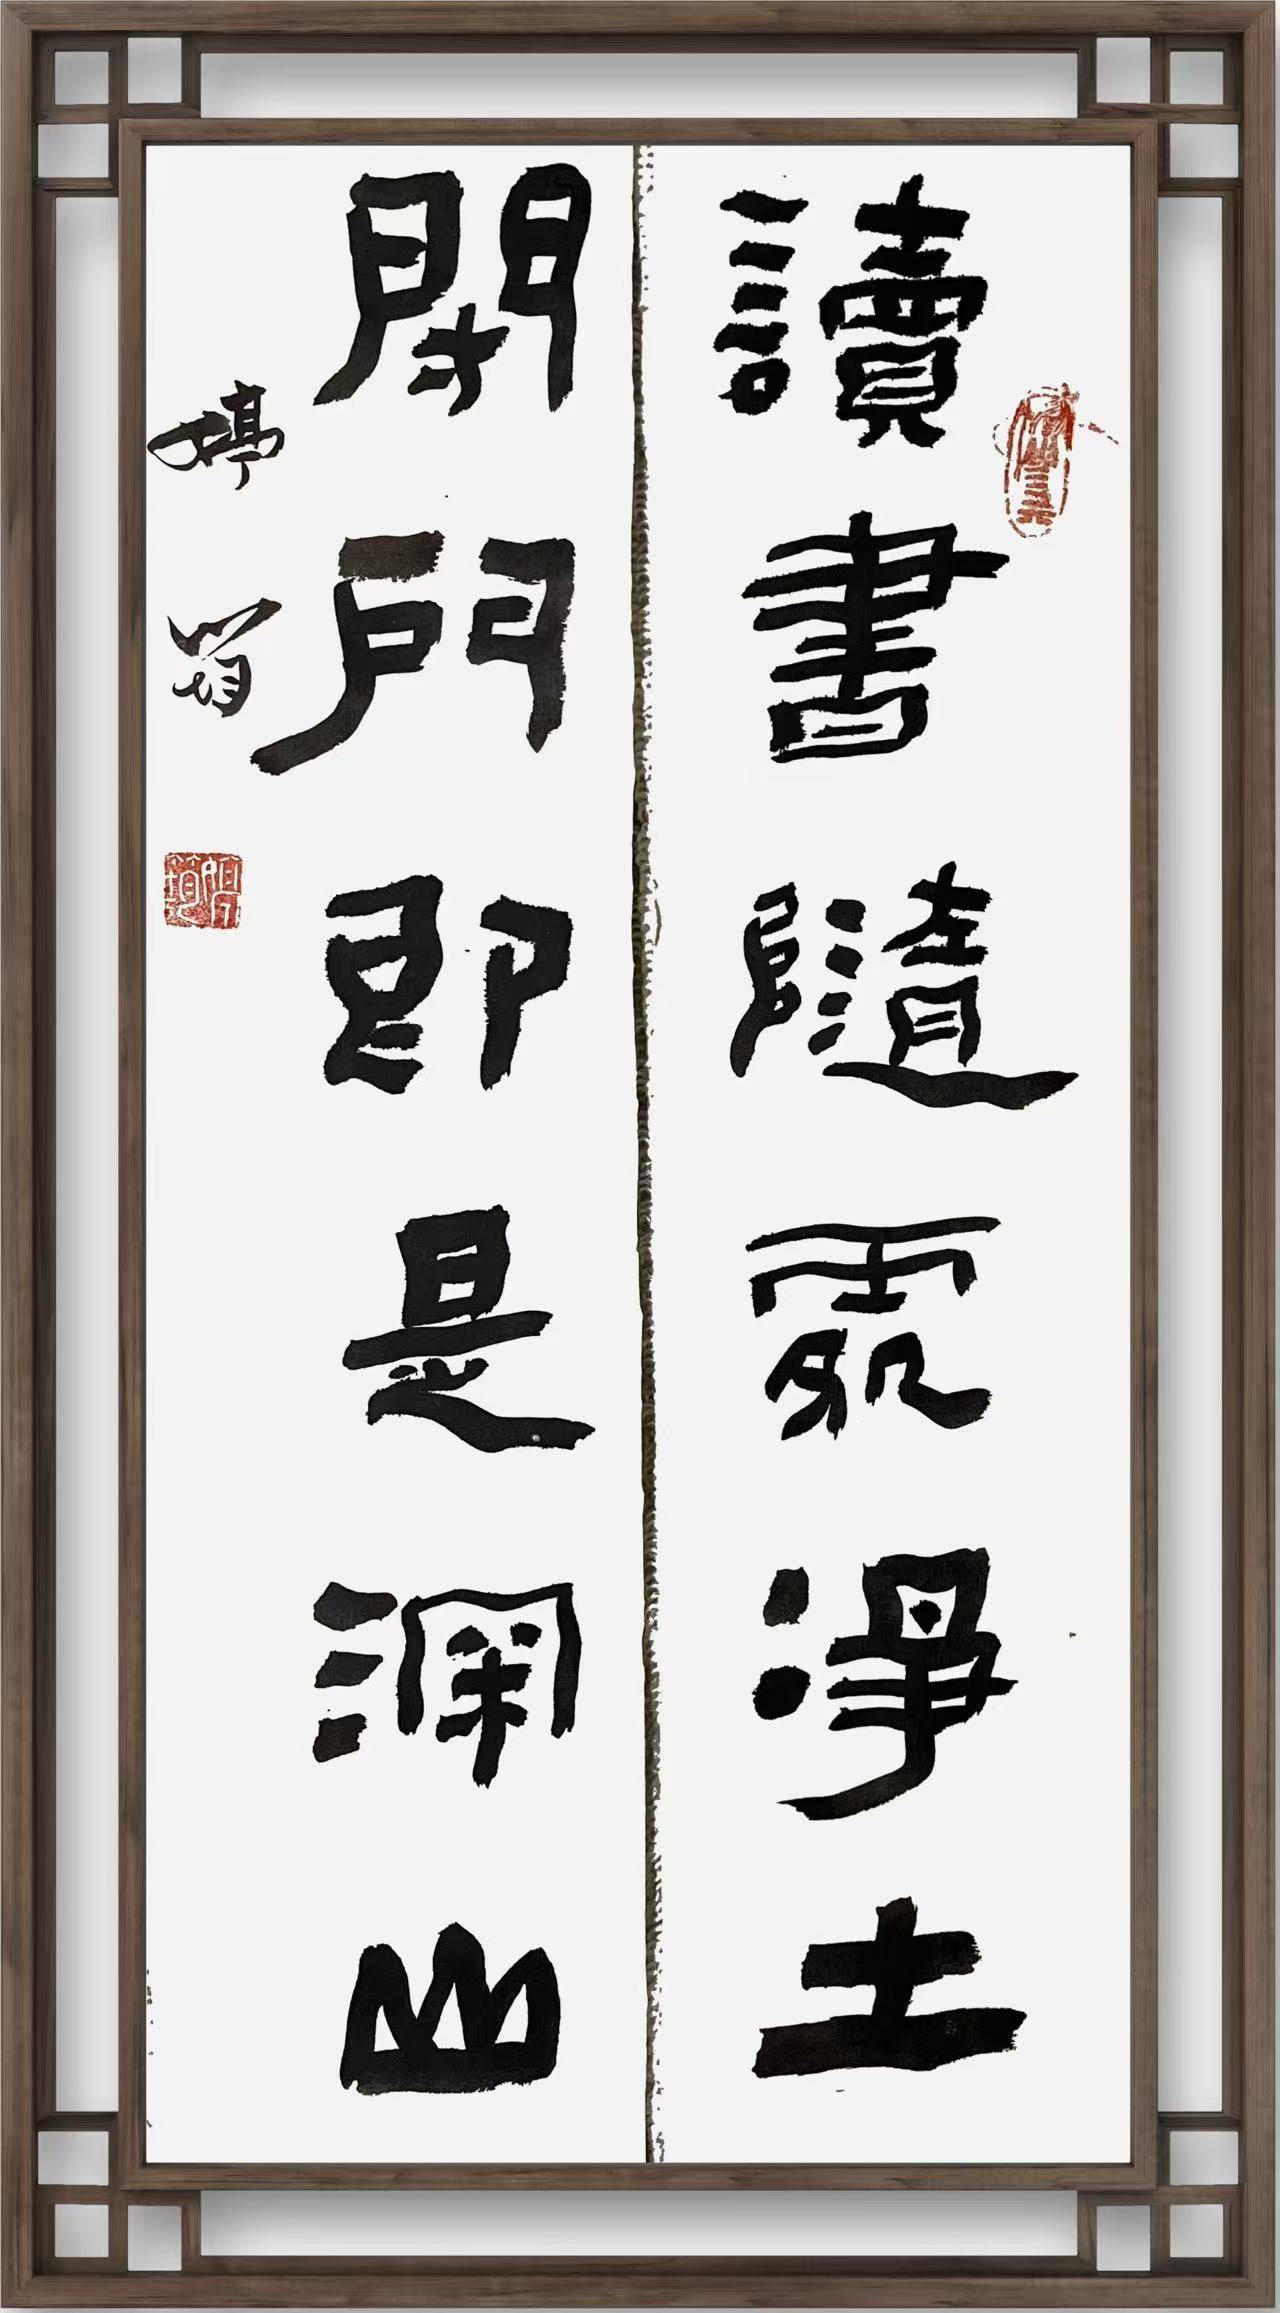 讀書隨處淨土
閉門即是深山
婷筠